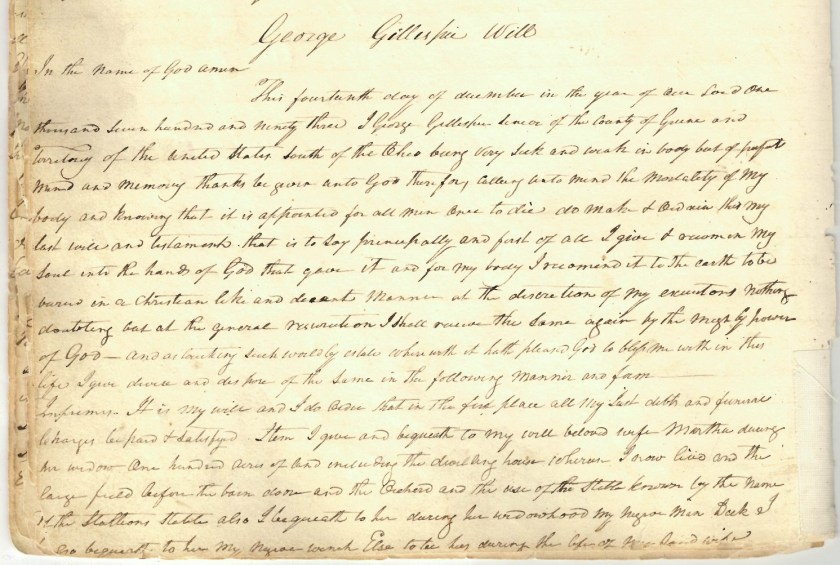 George Gillespie Will
In the name of God amen
This fourteenth day of december in the year of our Lord One
thousand seven hundred and ninety three I George Gillespie senior of the County of Greene and
Territory of the United States South of the Ohio being very sick and weak in body but of perfect
mind and memory thanks be given unto God therefor, calling unto mind the mortality of my
body and knowing that it is appointed for all men once to die do make & ordain this my
last will and testament that is to say principally and first of all I give & recomen my
soul into the hands of God that gave it and for my body I recomend it to the earth to be
buried in a Christian like and decent manner at the discretion of my executors nothing
doubting but at the general resurrection I shall receive the same again by the mighty power
of God — and as touching such worldly estate wherewith it hath pleased God to bless me with in this
life I give devise and dispose of the same in the following manner and form
Imprimes. It is my will and I do order that in the first place all my just debts and funeral
charges be paid & satisfyed. Item I give and bequeath to my well beloved wife Martha during
her widow one hundred acres of land including the dwelling house wherein I now live and the
large field before the barn door and the orchard and the use of the stable known by the name
of the Stallions stable also I bequeath to her during her widowhood my negroe man Dick & I
also bequeath to her my negroe wench Else to be hers during the life of my said wife